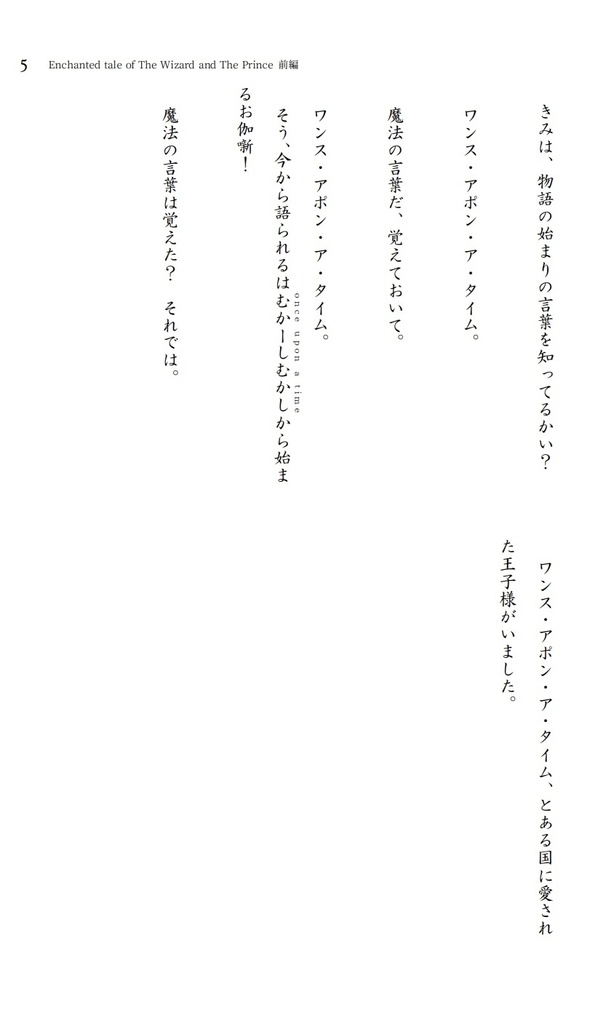 5 Enchanted tale of The Wizard and The Prince 前編
きみは、物語の始まりの言葉を知ってるかい？
ワンス・アポン・ア・タイム。
魔法の言葉だ、覚えておいて。
ワンス・アポン・ア・タイム。
once upon a time
そう、今から語られるはむかーしむかしから始ま
るお伽噺！
魔法の言葉は覚えた？　それでは。
ワンス・アポン・ア・タイム、とある国に愛され
た王子様がいました。